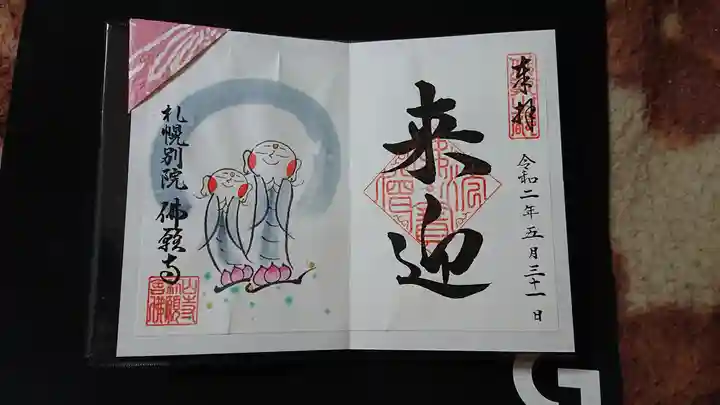 奉拝
令和二年五月三十一日
来迎
札幌別院 佛願寺
G